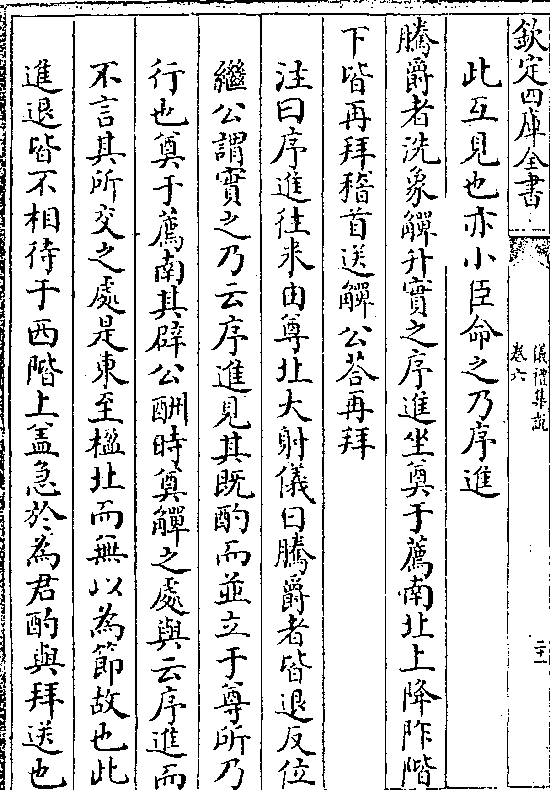 欽定四庫全書
儀禮集說
卷六
二十一
此互見也亦小臣命之乃序進
騰爵者洗象觶升實之序進坐奠于薦南北上降阼階
下皆再拜稽首送觶公荅再拜
注曰序進往来由尊北大射儀曰騰爵者皆退反位
繼公謂實之乃云序進見其既酌而並立于尊所乃
行也奠于薦南其辟公酬時奠觶之處與云序進而
不言其所交之處是東至楹北而無以為節故也此
進退皆不相待于西階上盖急於為君酌與拜送也